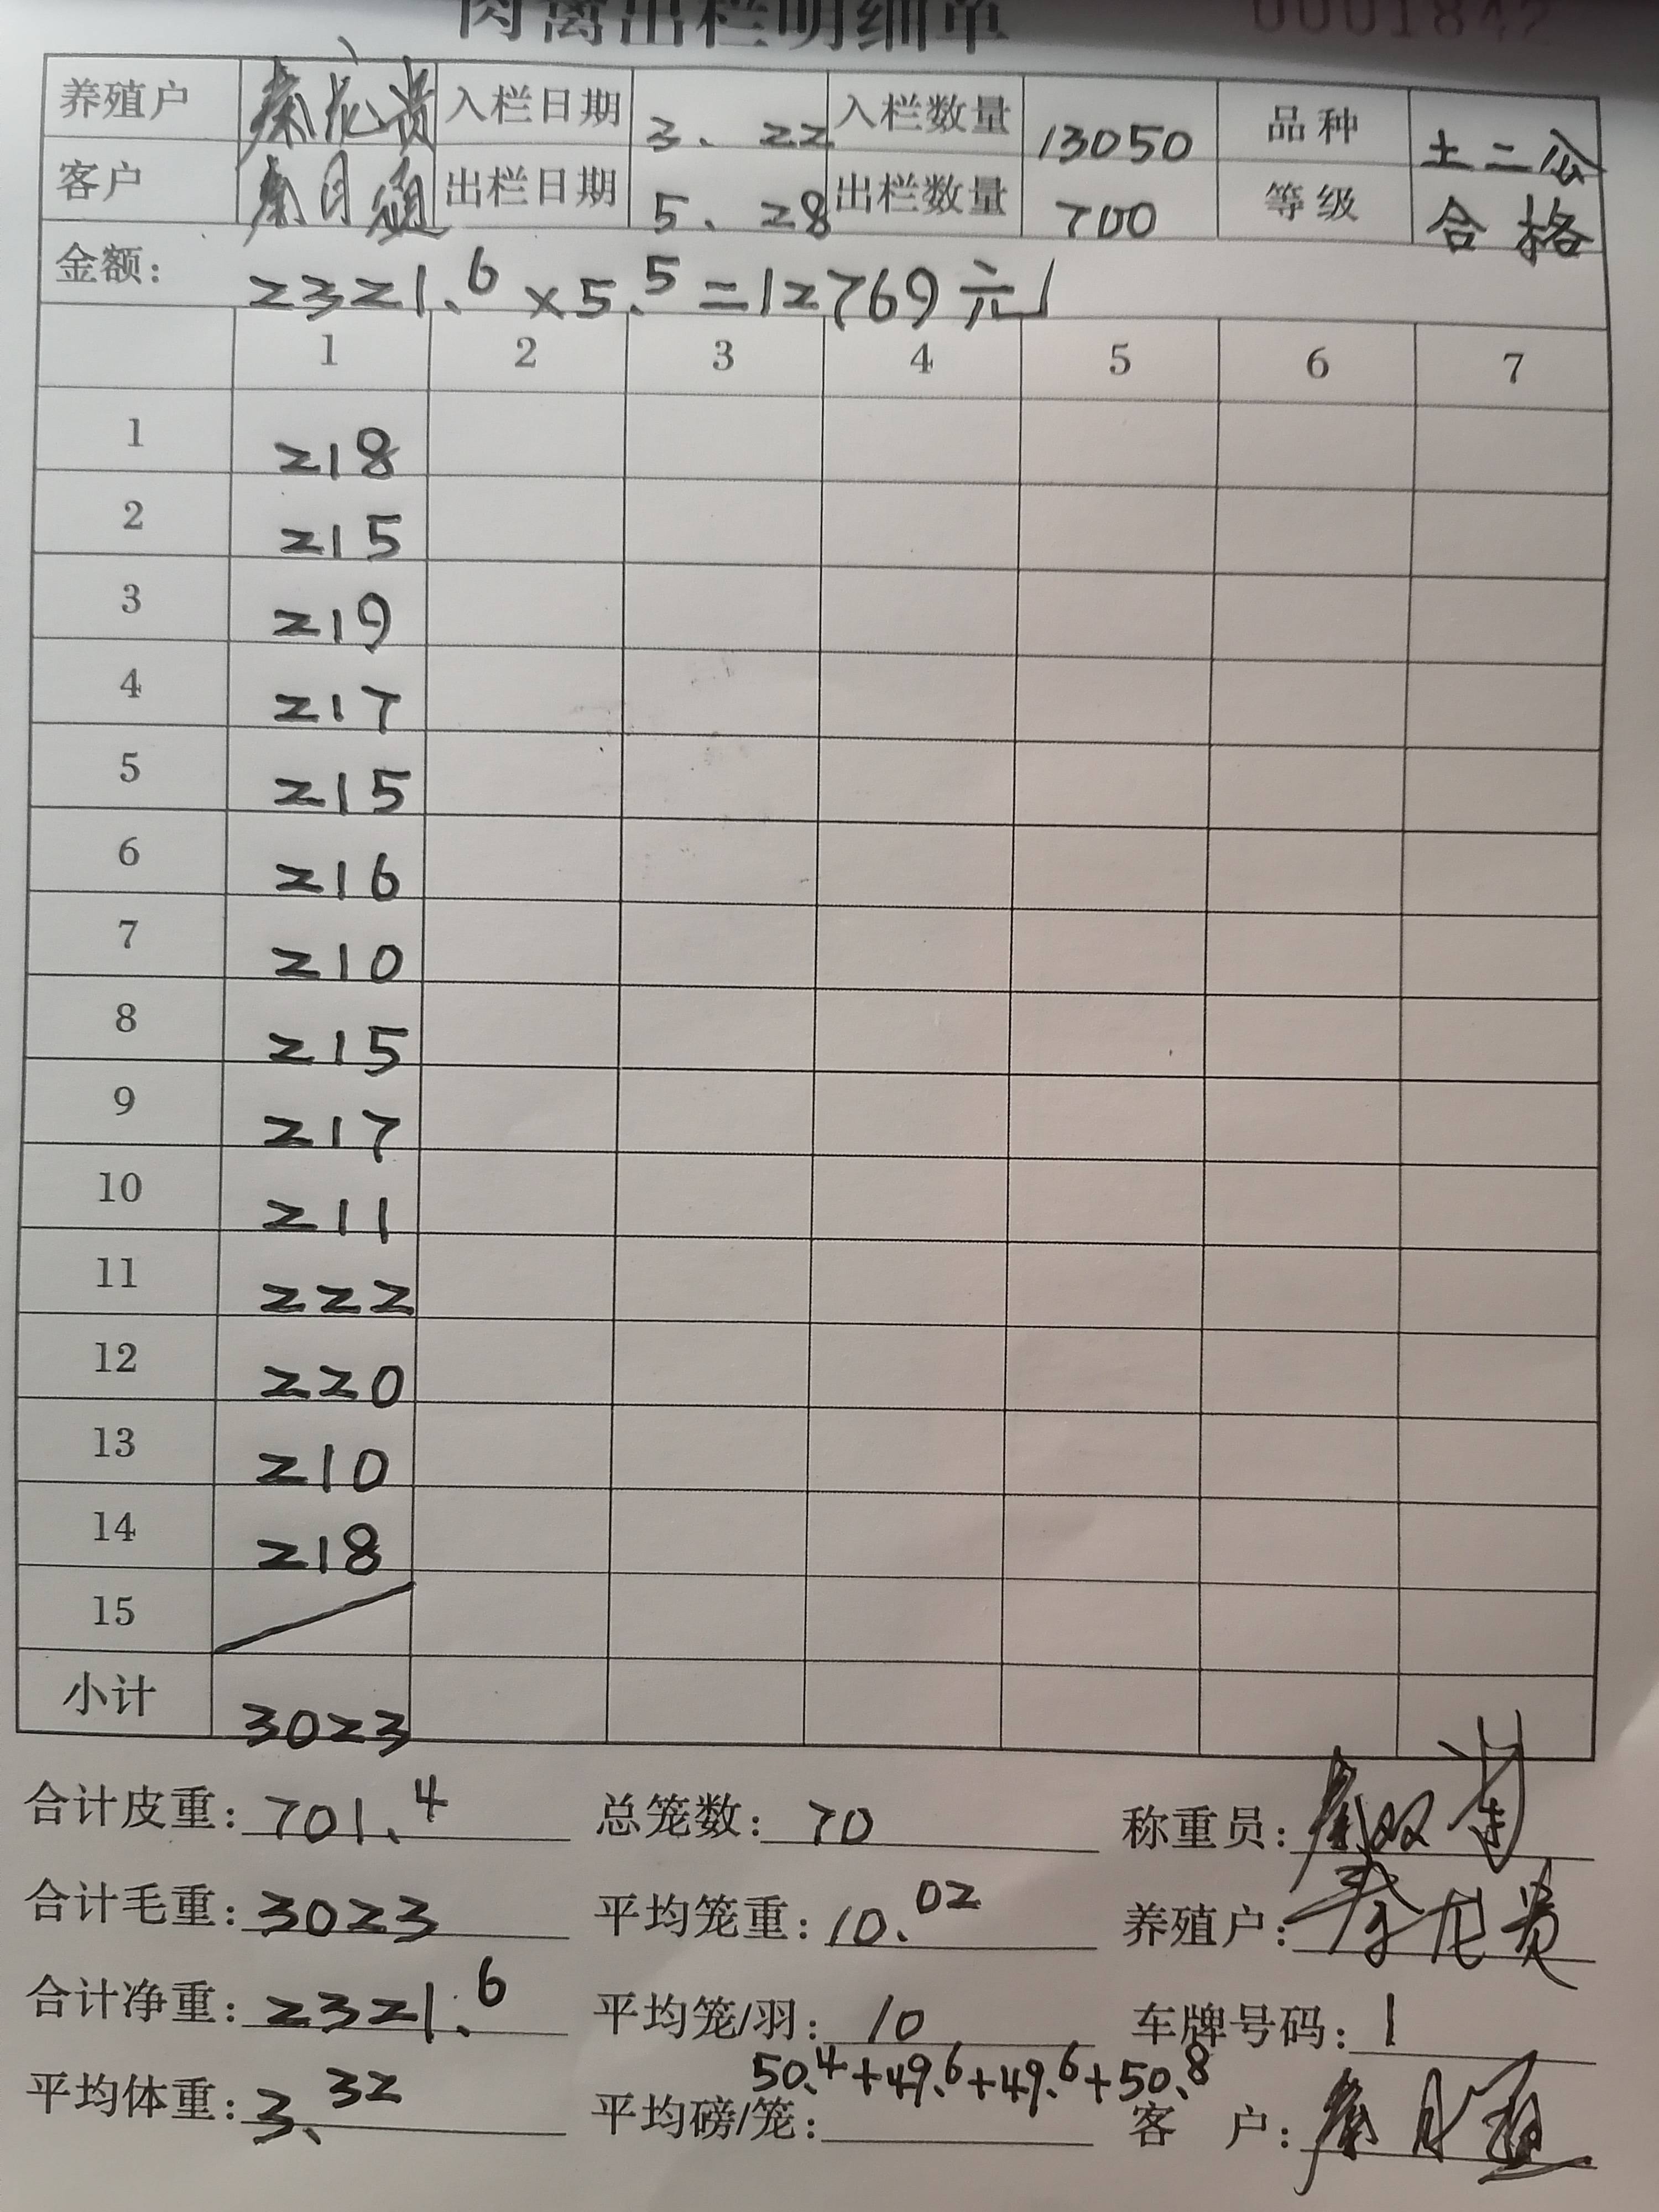 肉禽出栏明细单 0001842
养殖户 秦龙贵 入栏日期 3.22 入栏数量 13050 品种 土二公
客户 秦月 出栏日期 5.28 出栏数量 700 等级 合格
金额: 2321.6×5.5=12769元
1 2 3 4 5 6 7
1 218
2 215
3 219
4 217
5 215
6 216
7 210
8 215
9 217
10 211
11 222
12 220
13 210
14 218
15
小计 3023
合计皮重: 701.4 总笼数: 70 称重员: 秦双
合计毛重: 3023 平均笼重: 10.02 养殖户: 秦龙贵
合计净重: 2321.6 平均笼/羽: 10 车牌号码: 1
50.4+49.6+49.6+50.8
平均体重: 3.32 平均磅/笼: 客户: 秦月